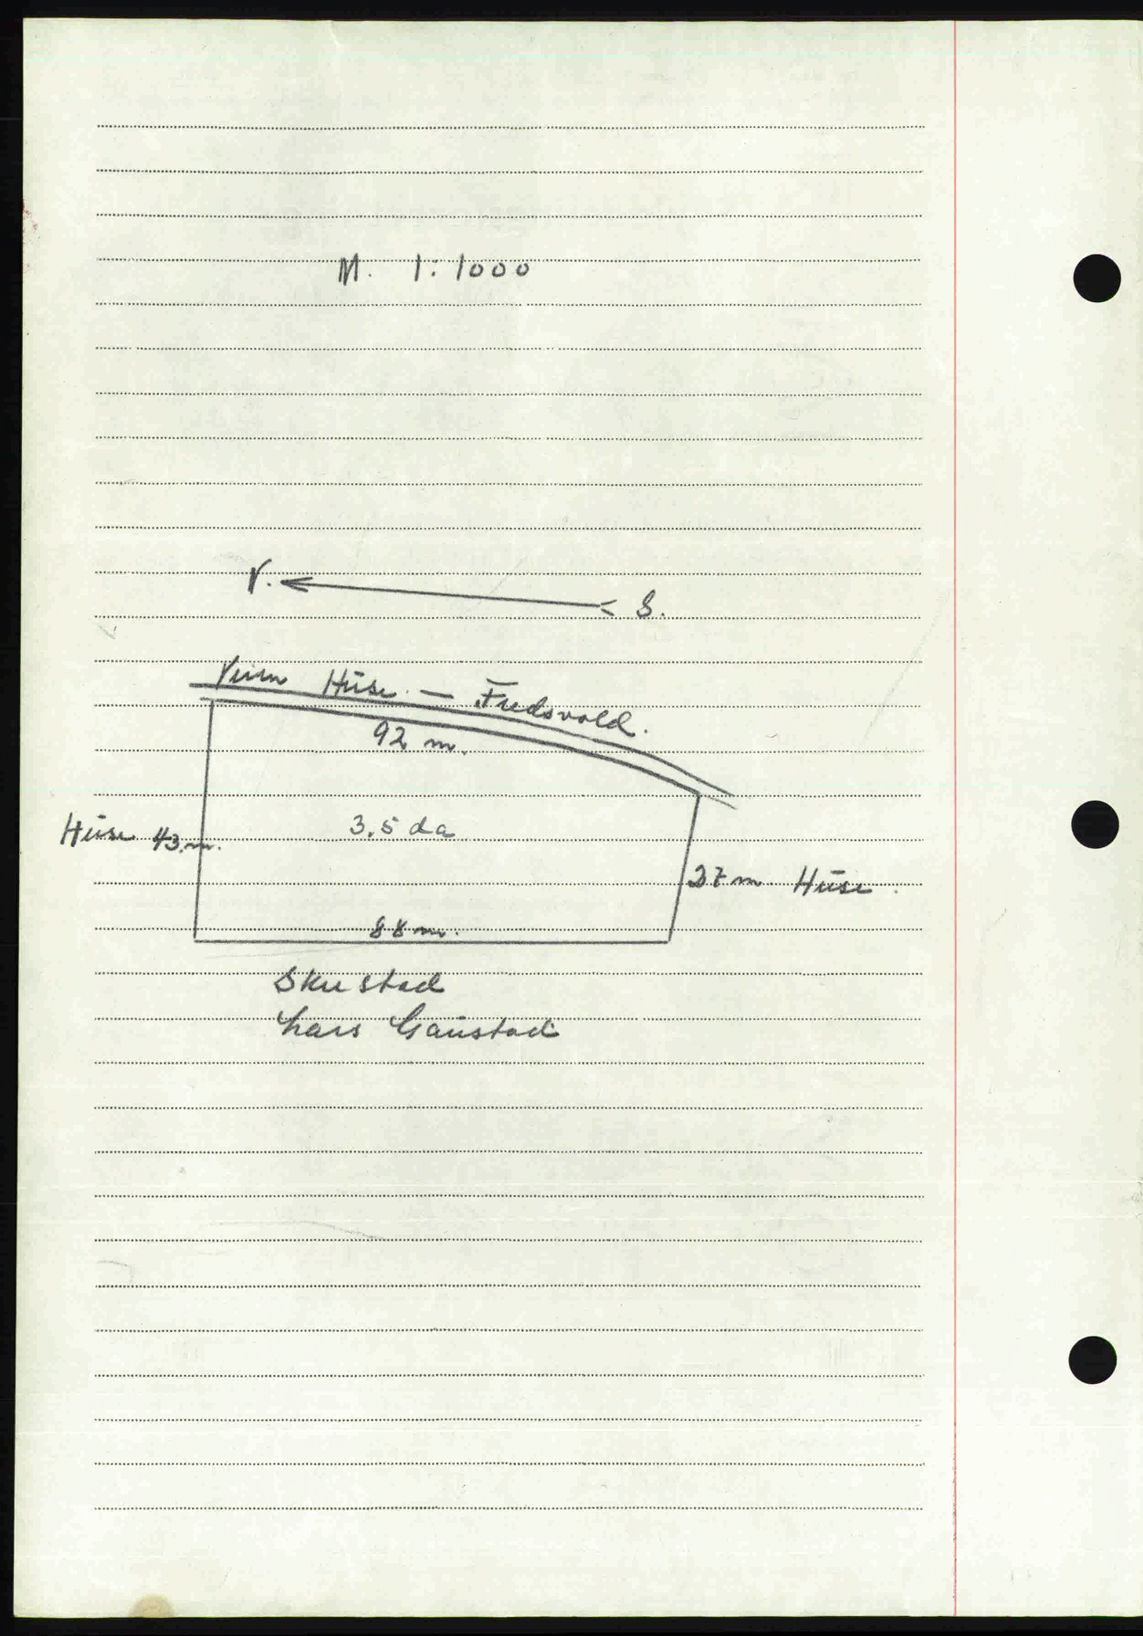 M. 1:1000
V. S.
Veien Huse. — Fredsvold.
92 m.
Huse 43 m. 3,5 da
27 m Huse.
88 m.
Skustad
Lars Gaustad